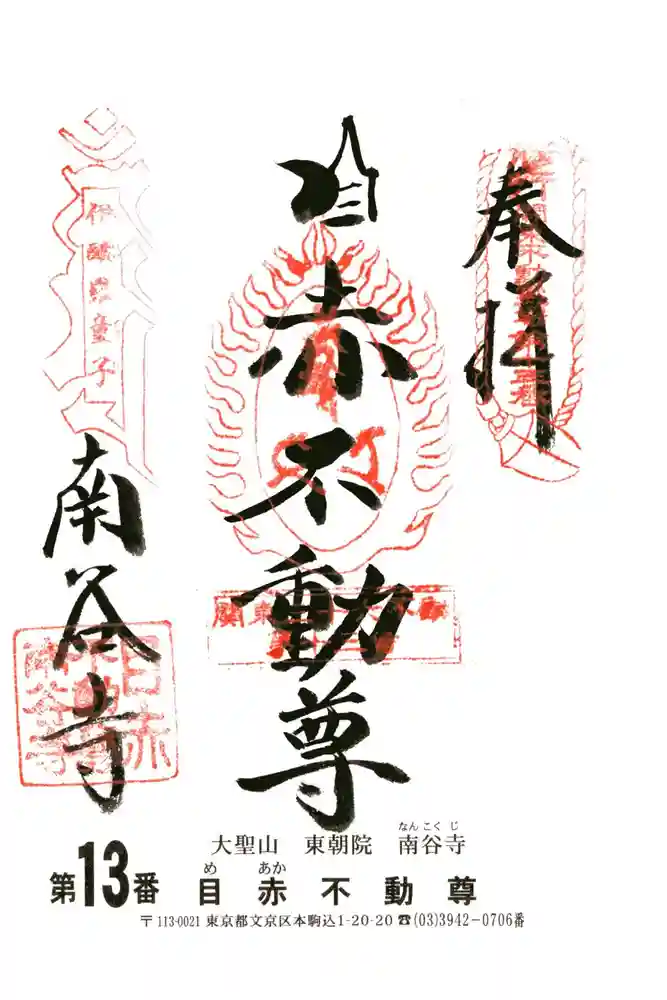 奉拝
目赤不動尊
南谷寺
伊醯羅童子
目赤
不動尊
南谷寺
大聖山 東朝院 南谷寺
なんこくじ
第13番 目赤不動尊
め あか
〒113-0021 東京都文京区本駒込1-20-20☎(03)3942-0706番